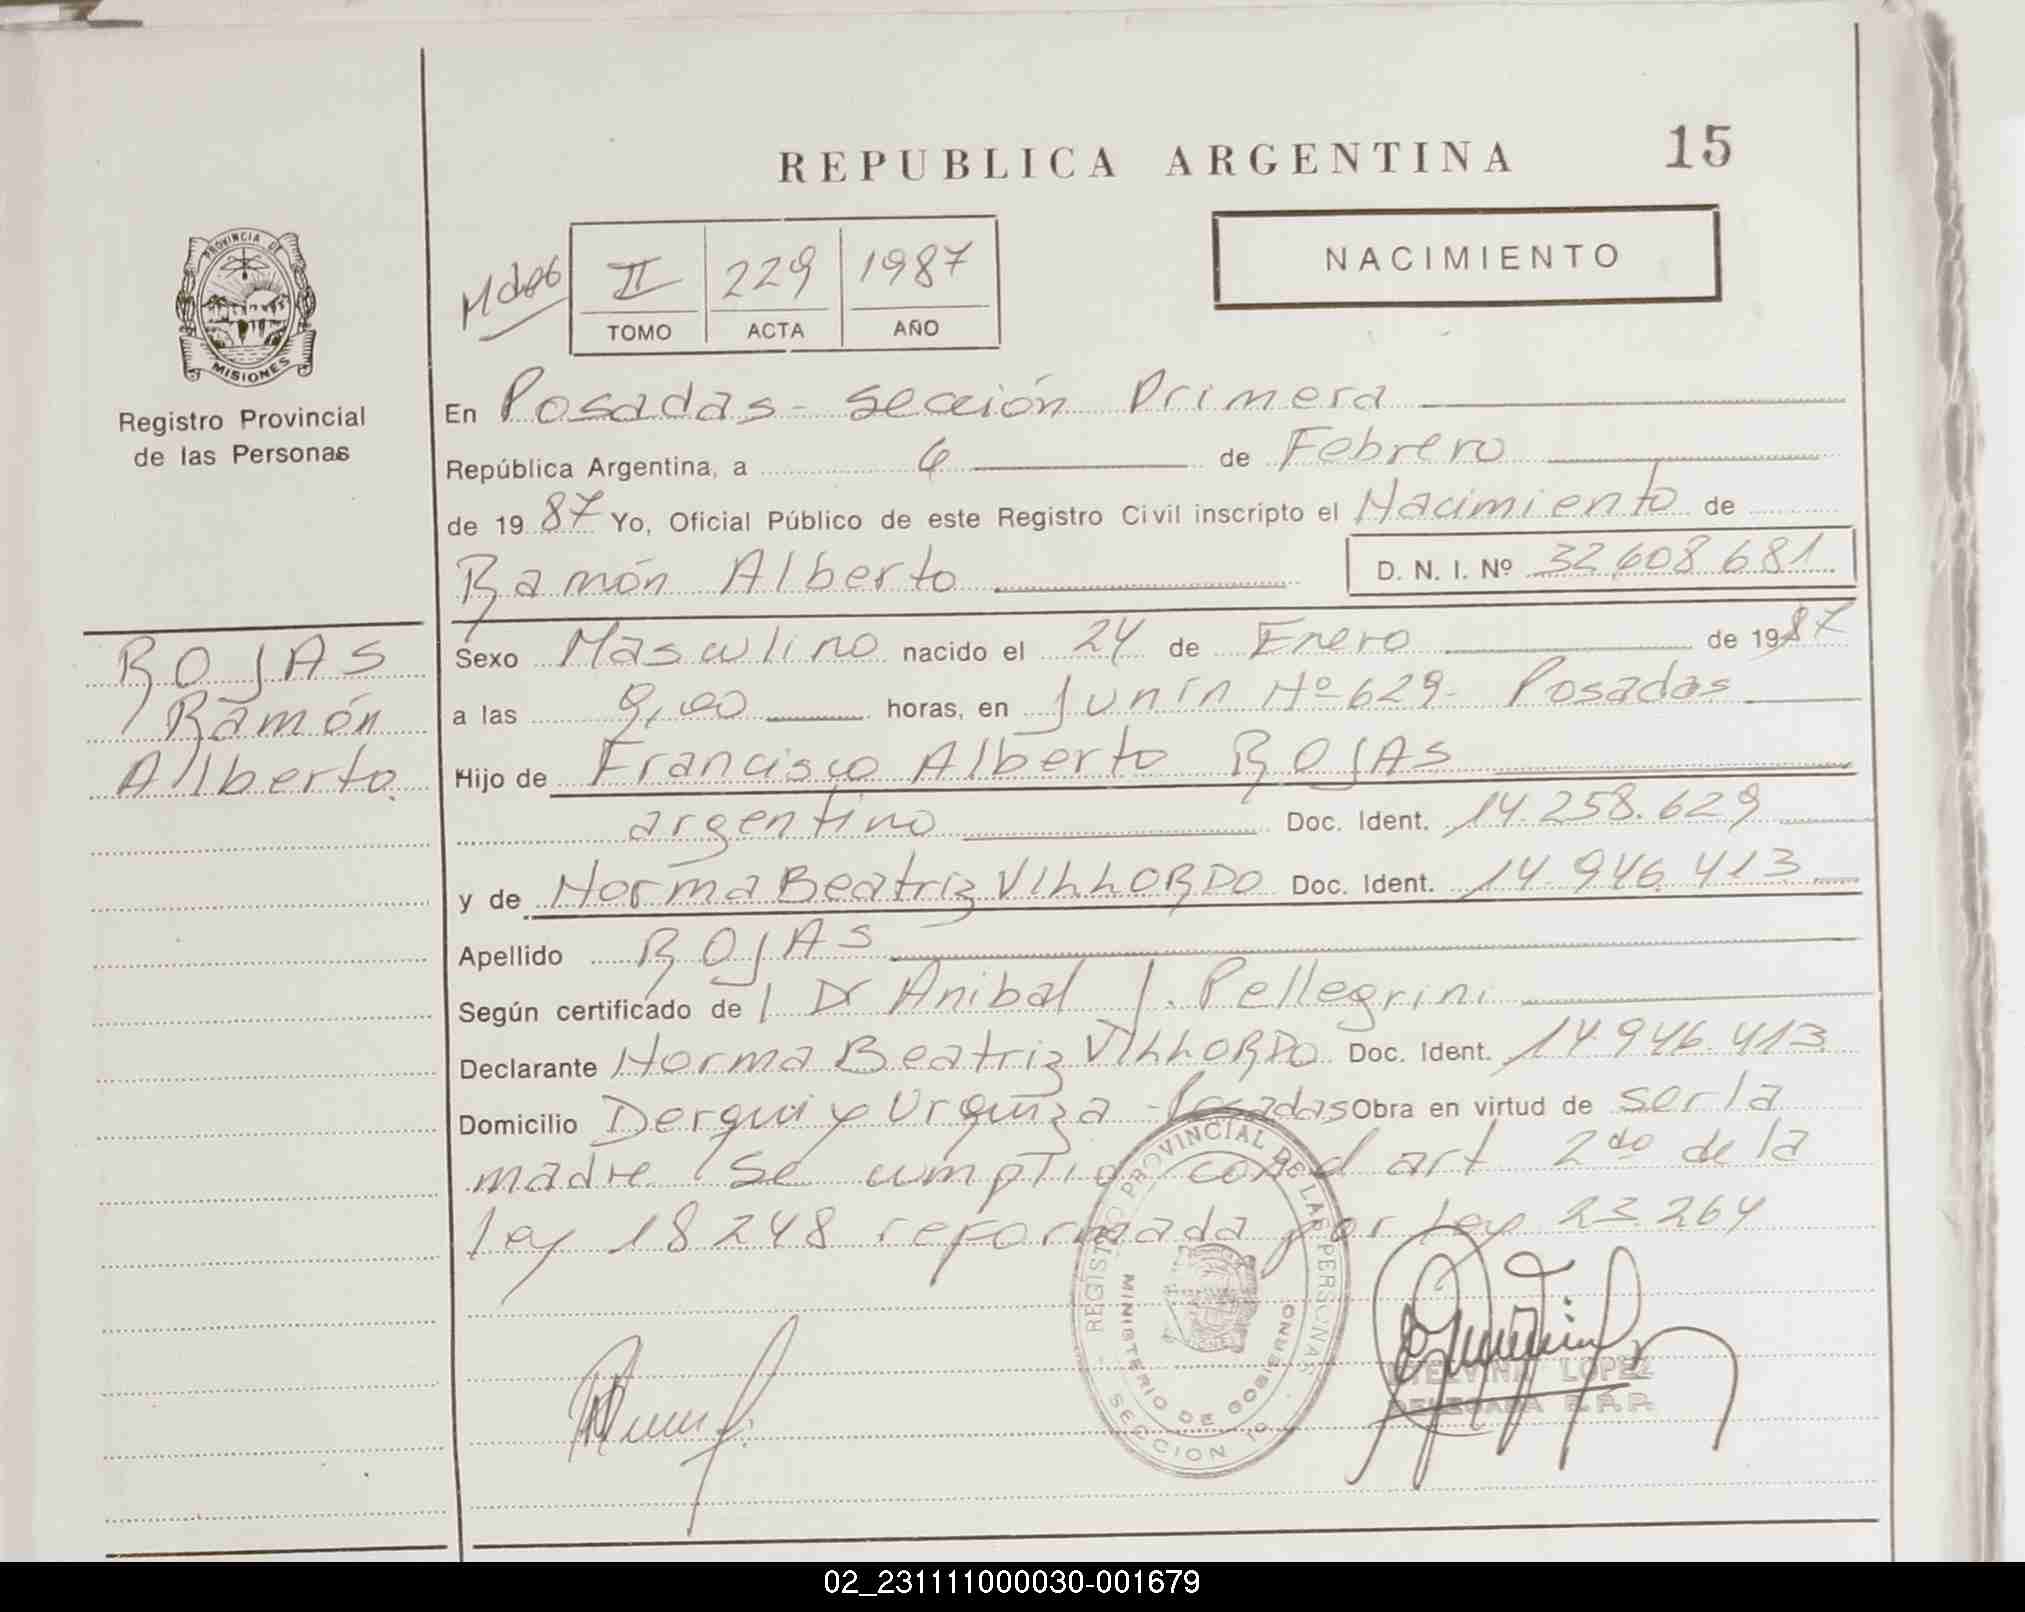 REPUBLICA ARGENTINA 15
NACIMIENTO
II 229 1987
TOMO ACTA AÑO
PROVINCIA DE
MISIONES
Registro Provincial
de las Personas
ROJAS
Ramón
Alberto
En Posadas - Sección Primera
República Argentina, a 6 de Febrero
de 1987 Yo, Oficial Público de este Registro Civil inscripto el Nacimiento de
Ramón Alberto D. N. I. Nº 32.608.681
Sexo Masculino nacido el 24 de Enero de 1987
a las 9,00 horas, en Junín Nº 629 - Posadas
Hijo de Francisco Alberto ROJAS
argentino Doc. Ident. 14.258.629
y de Norma Beatriz VILLORDO Doc. Ident. 14.946.413
Apellido ROJAS
Según certificado de Dr Anibal J. Pellegrini
Declarante Norma Beatriz VILLORDO Doc. Ident. 14.946.413
Domicilio Derqui y Urquiza - Posadas Obra en virtud de ser la
madre Se cumplio con el art 2do de la
Ley 18248 reformada por Ley 23264
REGISTRO PROVINCIAL DE LAS PERSONAS
MINISTERIO DE GOBIERNO
SECCION 1º
ETELVINA LOPEZ
DELEGADA R.P.P.
02_231111000030-001679